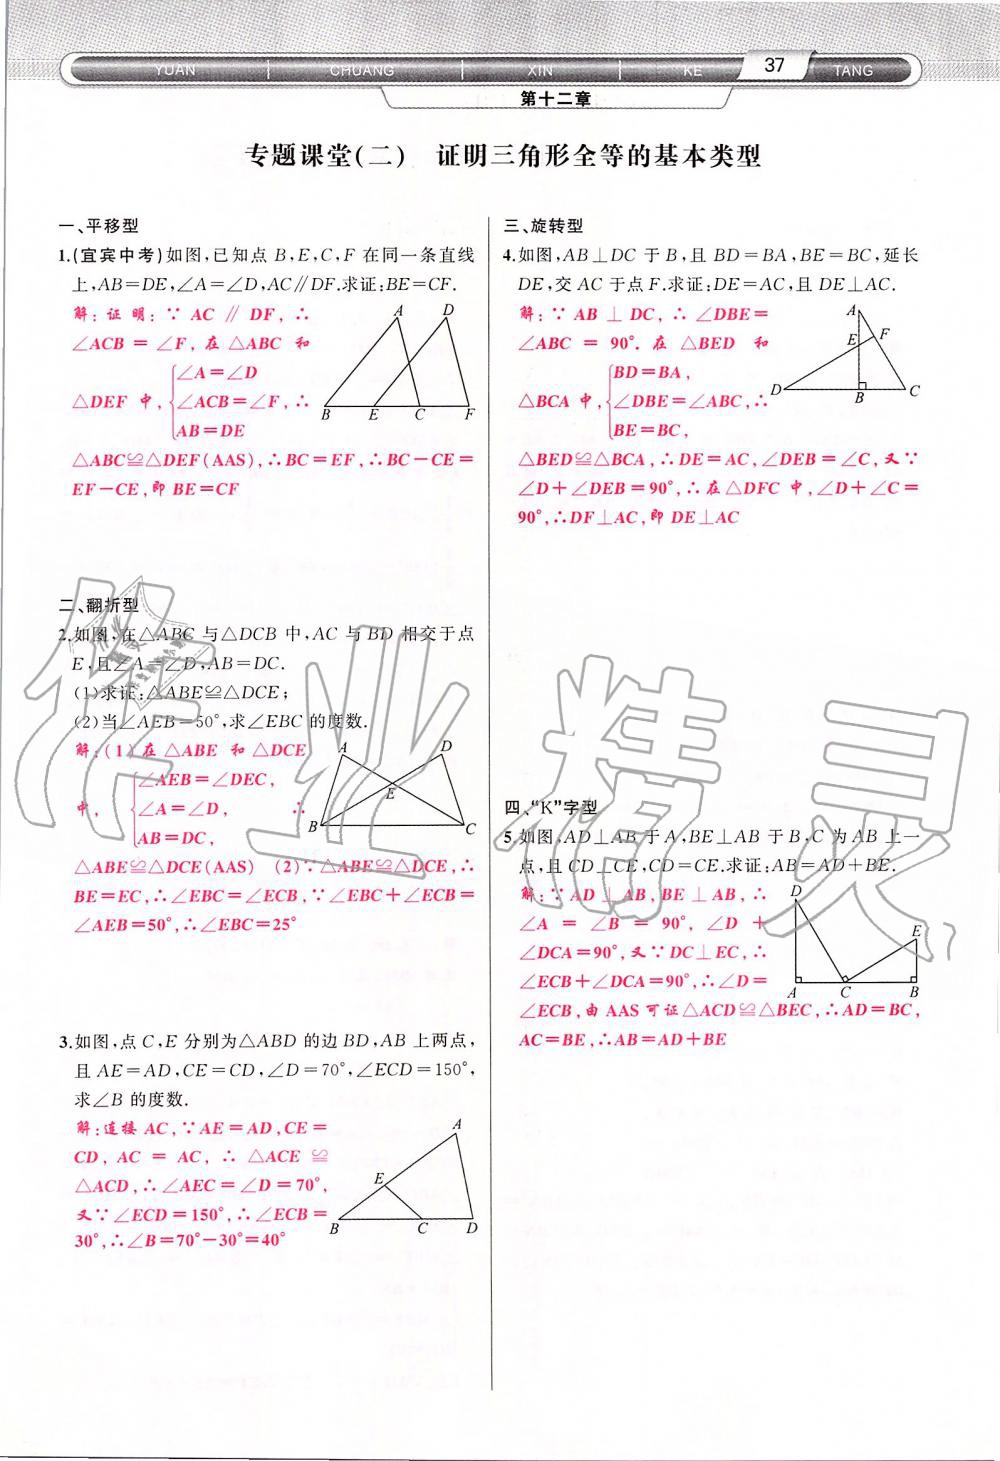 YUAN CHUANG XIN KE 37 TANG
第十二章
专题课堂(二) 证明三角形全等的基本类型
一、平移型
1.(宜宾中考)如图,已知点 B,E,C,F 在同一条直线
上,AB=DE,∠A=∠D,AC∥DF.求证:BE=CF.
解:证明:∵ AC ∥ DF, ∴
∠ACB = ∠F, 在 △ABC 和
∠A=∠D
△DEF 中, ∠ACB=∠F, ∴
AB=DE
△ABC≌△DEF(AAS),∴BC=EF,∴BC-CE=
EF-CE,即 BE=CF
A D
B E C F
二、翻折型
2.如图,在△ABC 与△DCB 中,AC 与 BD 相交于点
E,且∠A=∠D,AB=DC.
(1)求证:△ABE≌△DCE;
(2)当∠AEB=50°,求∠EBC 的度数.
解:(1)在 △ABE 和 △DCE
∠AEB=∠DEC,
中, ∠A=∠D, ∴
AB=DC,
△ABE≌△DCE(AAS) (2)∵△ABE≌△DCE,∴
BE=EC,∴∠EBC=∠ECB,∵∠EBC+∠ECB=
∠AEB=50°,∴∠EBC=25°
A D
E
B C
3.如图,点 C,E 分别为△ABD 的边 BD,AB 上两点,
且 AE=AD,CE=CD,∠D=70°,∠ECD=150°,
求∠B 的度数.
解:连接 AC,∵AE=AD,CE=
CD, AC = AC, ∴ △ACE ≌
△ACD,∴∠AEC=∠D=70°,
又∵∠ECD=150°,∴∠ECB=
30°,∴∠B=70°-30°=40°
A
E
B C D
三、旋转型
4.如图,AB⊥DC 于 B,且 BD=BA,BE=BC,延长
DE,交 AC 于点 F.求证:DE=AC,且 DE⊥AC.
解:∵ AB ⊥ DC, ∴ ∠DBE=
∠ABC = 90°. 在 △BED 和
BD=BA,
△BCA 中, ∠DBE=∠ABC, ∴
BE=BC,
△BED≌△BCA,∴DE=AC,∠DEB=∠C,又∵
∠D+∠DEB=90°,∴在△DFC 中,∠D+∠C=
90°,∴DF⊥AC,即 DE⊥AC
A
E F
D B C
四、“K”字型
5.如图,AD⊥AB 于 A,BE⊥AB 于 B,C 为 AB 上一
点,且 CD⊥CE,CD=CE.求证:AB=AD+BE.
解:∵ AD⊥AB,BE⊥AB, ∴
∠A = ∠B = 90°, ∠D +
∠DCA=90°,又∵DC⊥EC,∴
∠ECB+∠DCA=90°,∴∠D=
∠ECB,由 AAS 可证△ACD≌△BEC,∴AD=BC,
AC=BE,∴AB=AD+BE
D
E
A C B
作业精灵